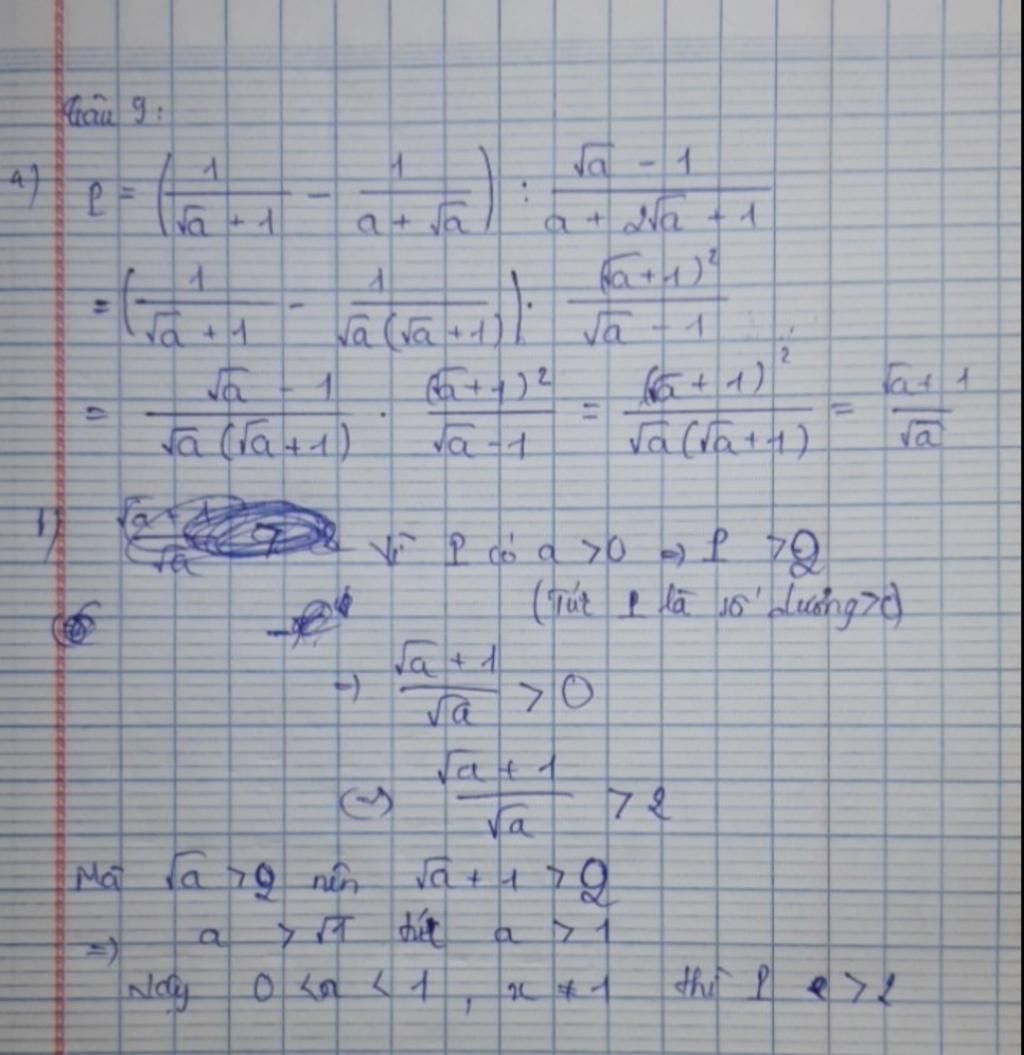 Câu 9:
a) P = (1/(√a + 1) - 1/(a + √a)) : (√a - 1)/(a + 2√a + 1)
= (1/(√a + 1) - 1/(√a(√a + 1))) . (√a + 1)²/(√a - 1)
= (√a - 1)/(√a(√a + 1)) . (√a + 1)²/(√a - 1) = (√a + 1)²/(√a(√a + 1)) = (√a + 1)/√a
b) Vì P có a > 0 => P > 2
(Tức P là số dương > 0)
=> (√a + 1)/√a > 0
(=>) (√a + 1)/√a > 2
Mà √a > 2 nên √a + 1 > 2
=> a > √1 tức a > 1
Vậy 0 < x < 1, x ≠ 1 thì P > 2